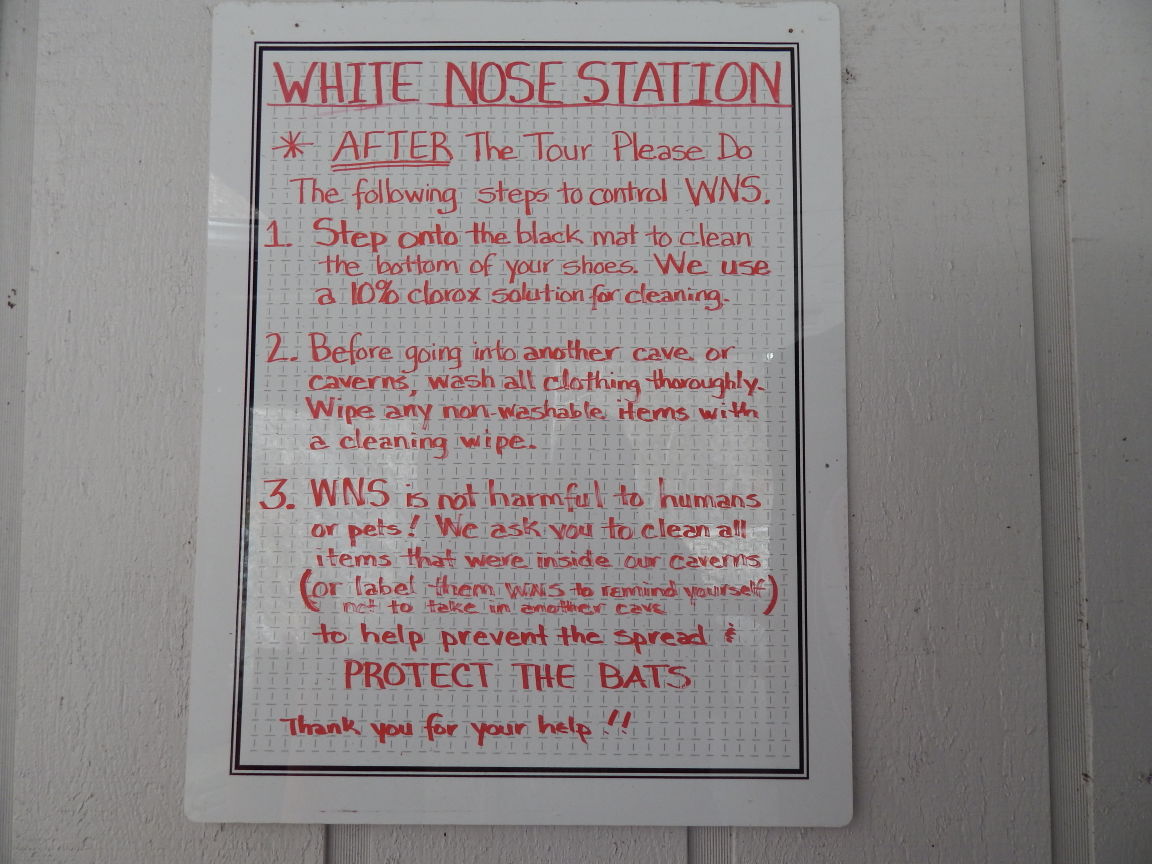 WHITE NOSE STATION
* AFTER The Tour Please Do
The following steps to control WNS.
1. Step onto the black mat to clean
the bottom of your shoes. We use
a 10% clorox solution for cleaning.
2. Before going into another cave or
caverns, wash all clothing thoroughly.
Wipe any non-washable items with
a cleaning wipe.
3. WNS is not harmful to humans
or pets! We ask you to clean all
items that were inside our caverns
(or label them WNS to remind yourself)
not to take in another cave
to help prevent the spread &
PROTECT THE BATS
Thank you for your help!!